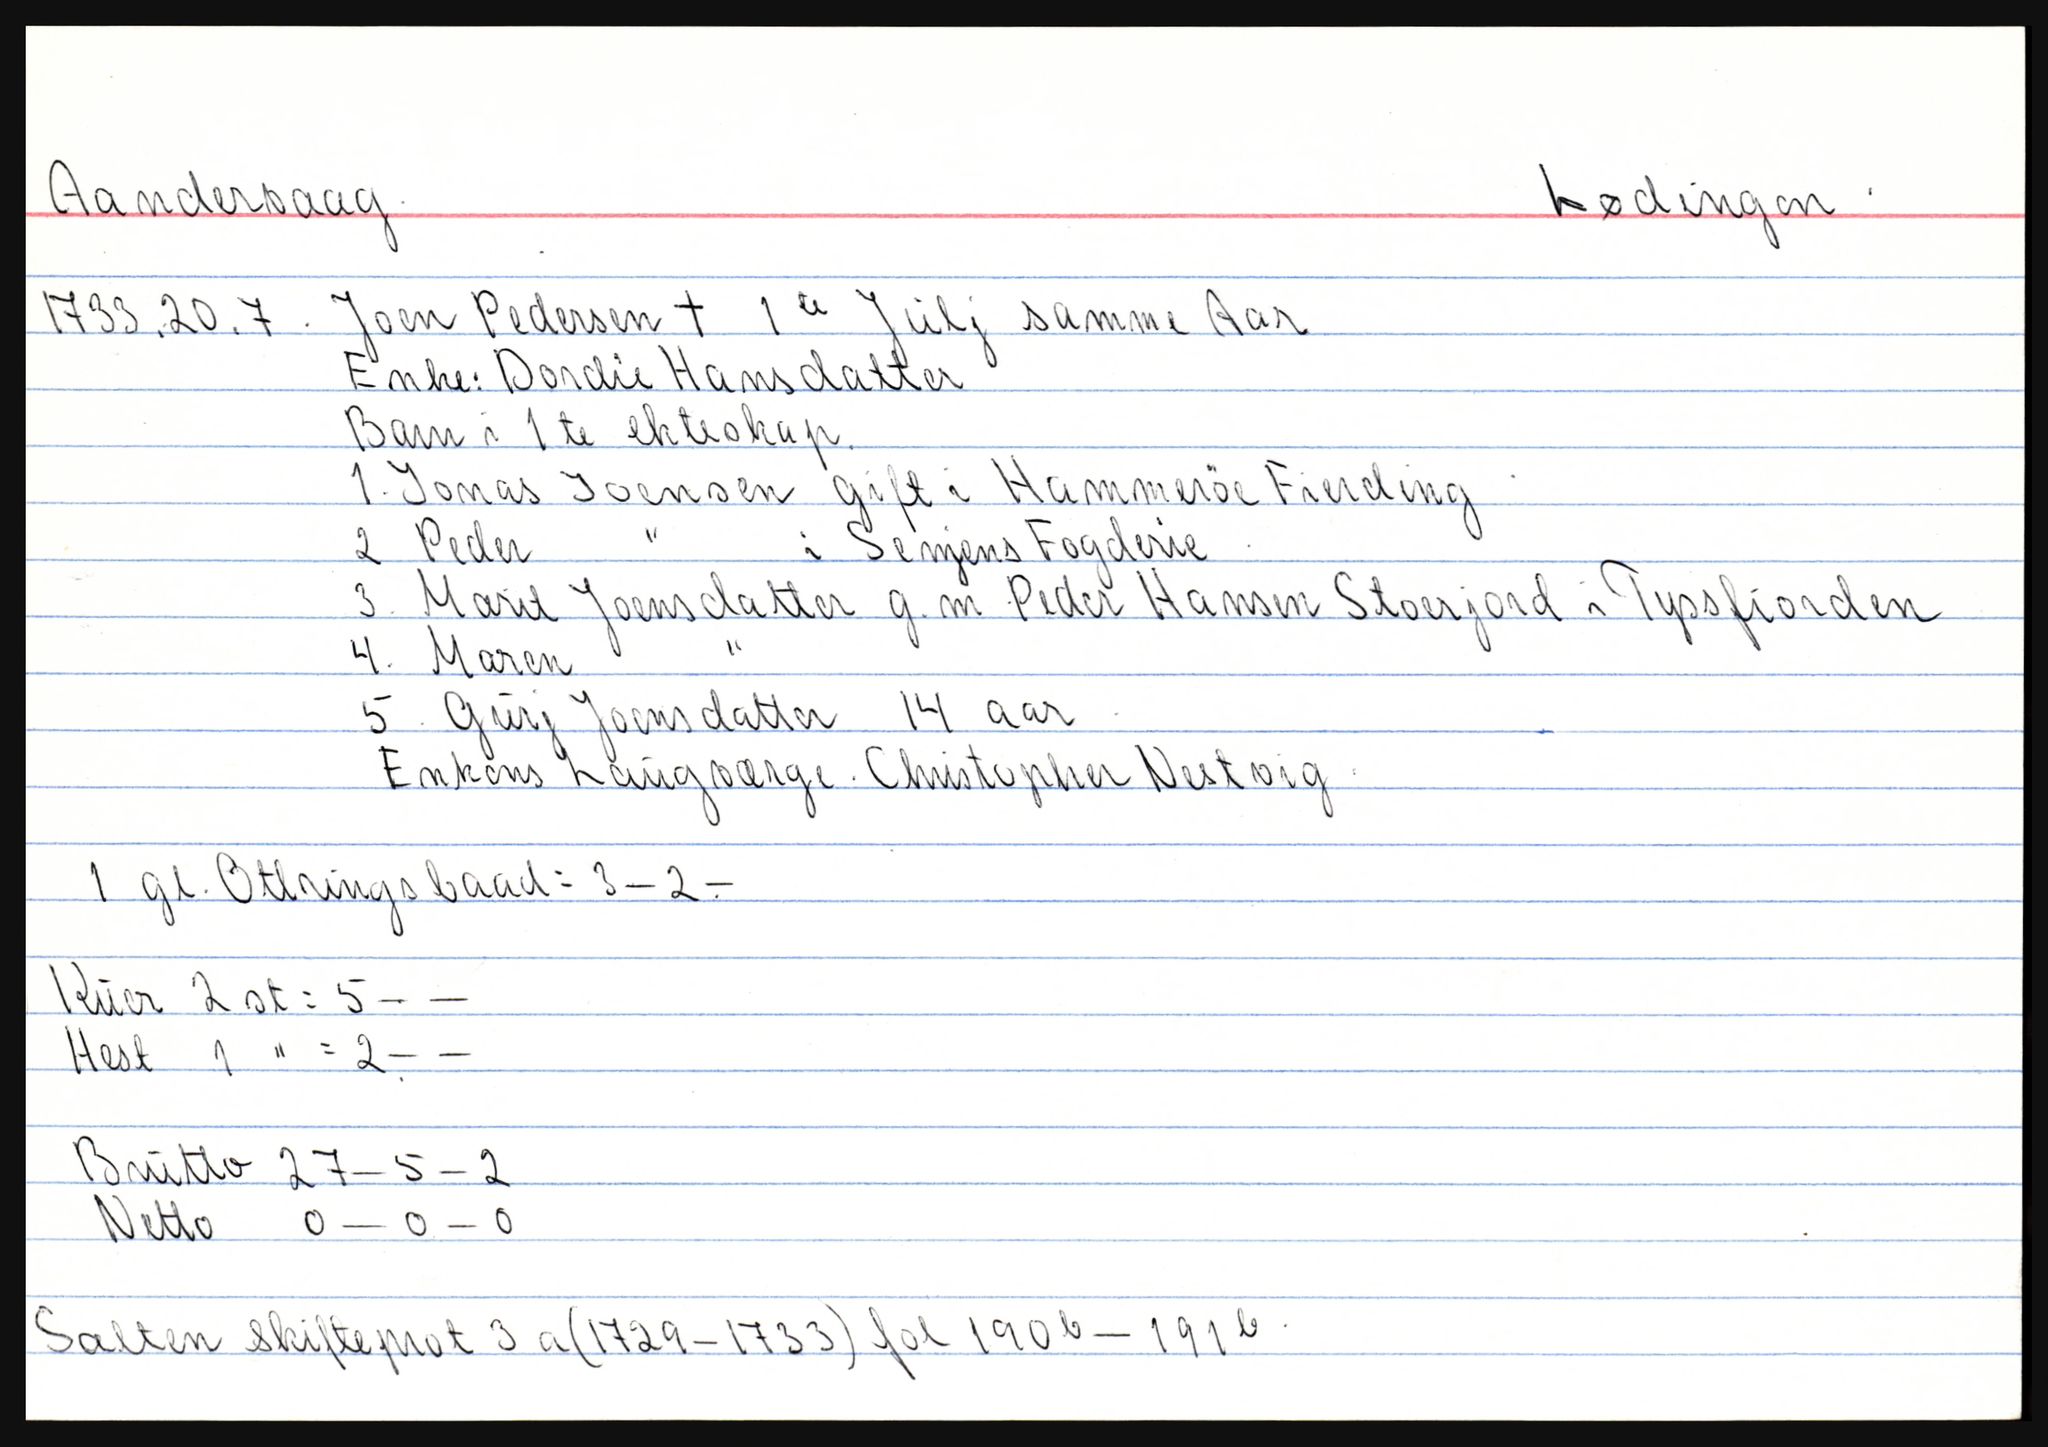 Aandervaag. Lødingen.
1733.20.7. Joen Pedersen † 1te Jülj samme Aar
Enke: Dordie Hansdatter
Barn i 1te ekteskap.
1. Jonas Joensen gift i Hammeröe Fierding.
2 Peder " i Senjens Fogderie.
3. Marit Joensdatter g.m. Peder Hansen Stoerjord i Tyssfiorden
4. Maren "
5. Gürj Joensdatter 14 aar.
Enkens Laügværge. Christopher Nestvig.
1 gl. Ottringsbaad = 3-2-
Küer 2 st = 5- -
Hest 1 " = 2- -
Brütto 27-5-2
Netto 0-0-0
Salten skifteprot 3 a (1729-1733) fol 190b-191b.